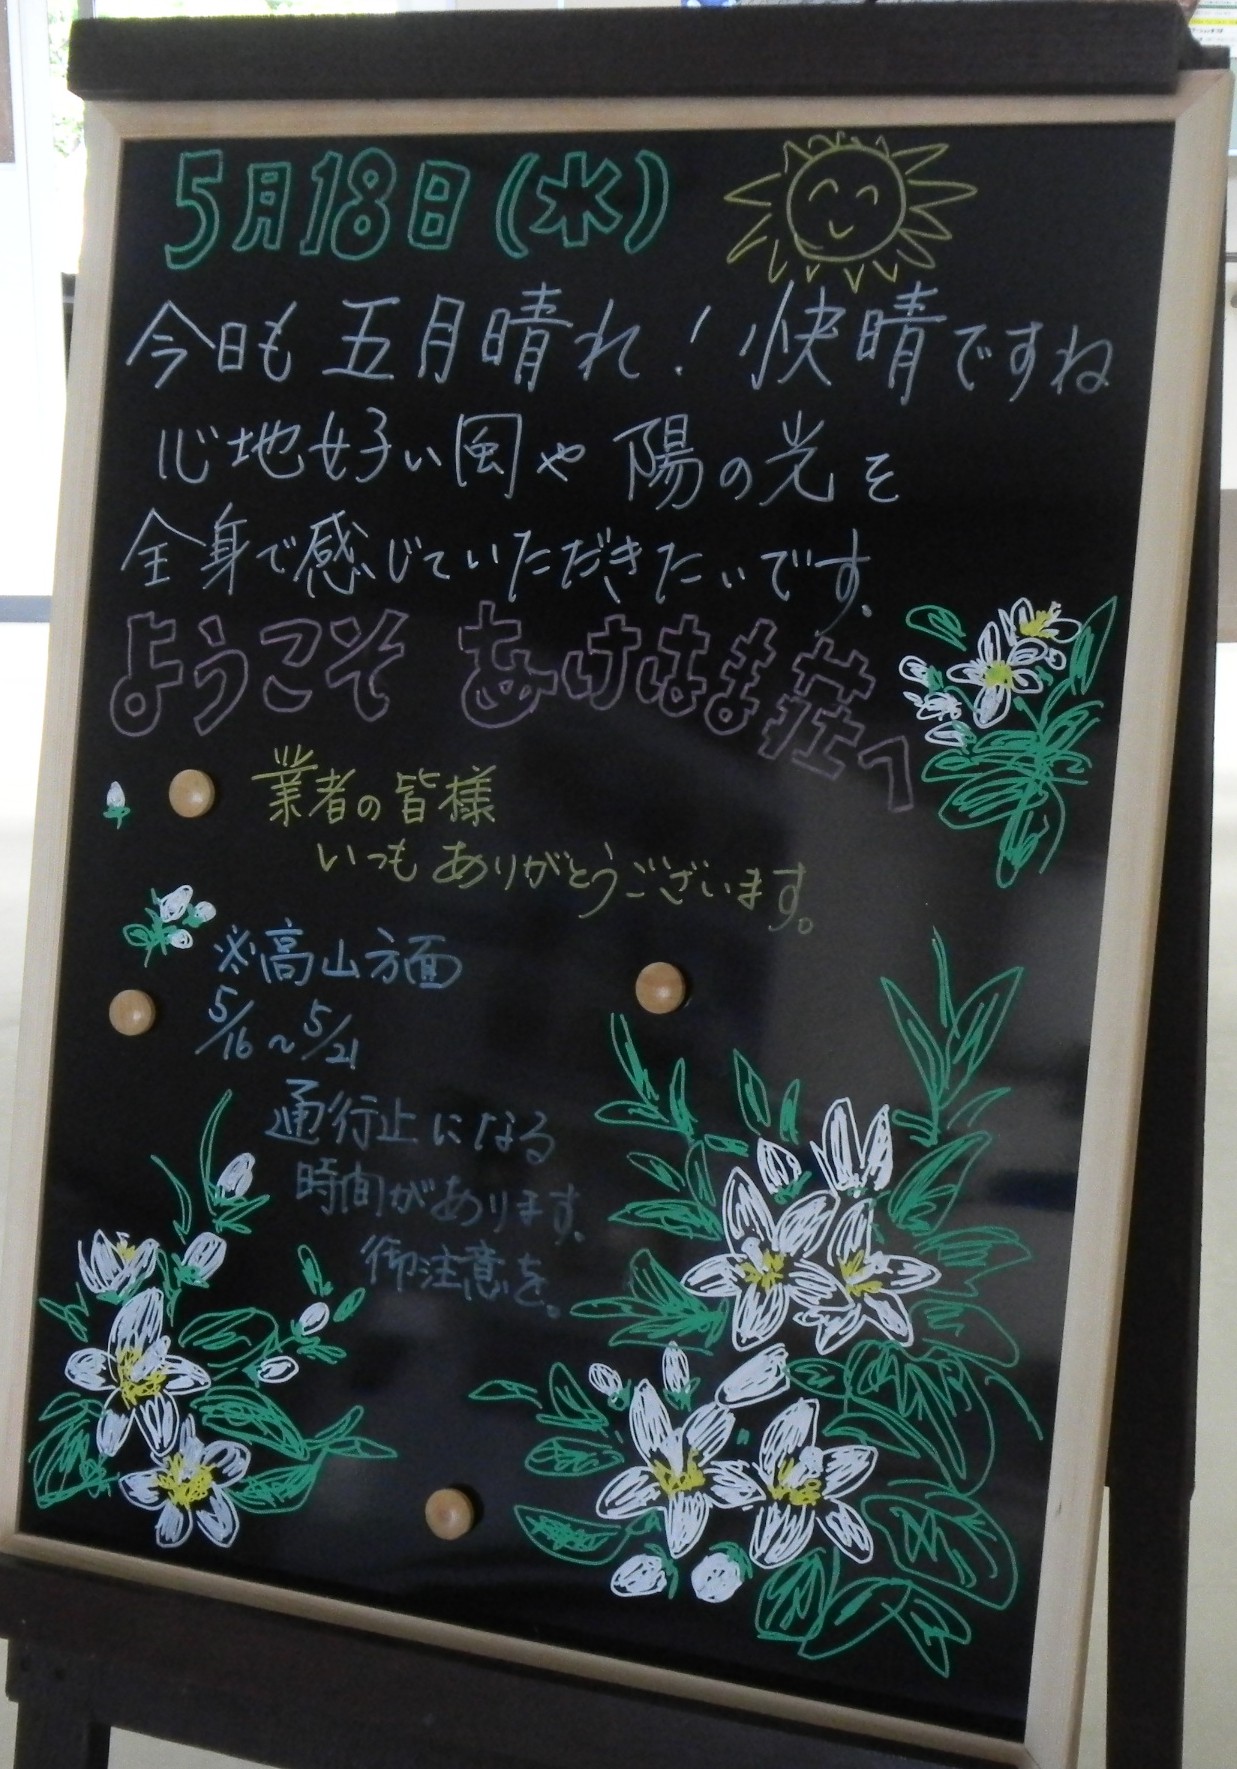 5月18日(水)
今日も五月晴れ!快晴ですね
心地好い風や陽の光を
全身で感じていただきたいです。
ようこそ あけはま荘へ
業者の皆様
いつもありがとうございます。
※高山方面
5/16~5/21
通行止になる
時間があります。
御注意を。